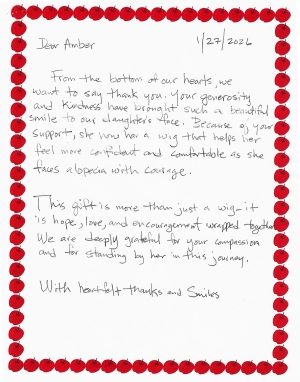 Dear Amber 1/27/2026
From the bottom of our hearts, we
want to say thank you. Your generosity
and kindness have brought such a beautiful
smile to our daughter's face. Because of your
support, she now has a wig that helps her
feel more confident and comfortable as she
faces alopecia with courage.
This gift is more than just a wig-it
is hope, love, and encouragement wrapped together
We are deeply grateful for your compassion
and for standing by her in this journey.
With heartfelt thanks and Smiles